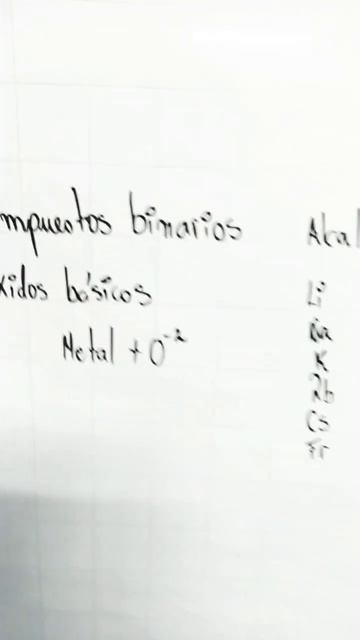 mpuestos binarios
xidos básicos
Metal + O⁻²
Alcal
Li
Na
K
Rb
Cs
Fr